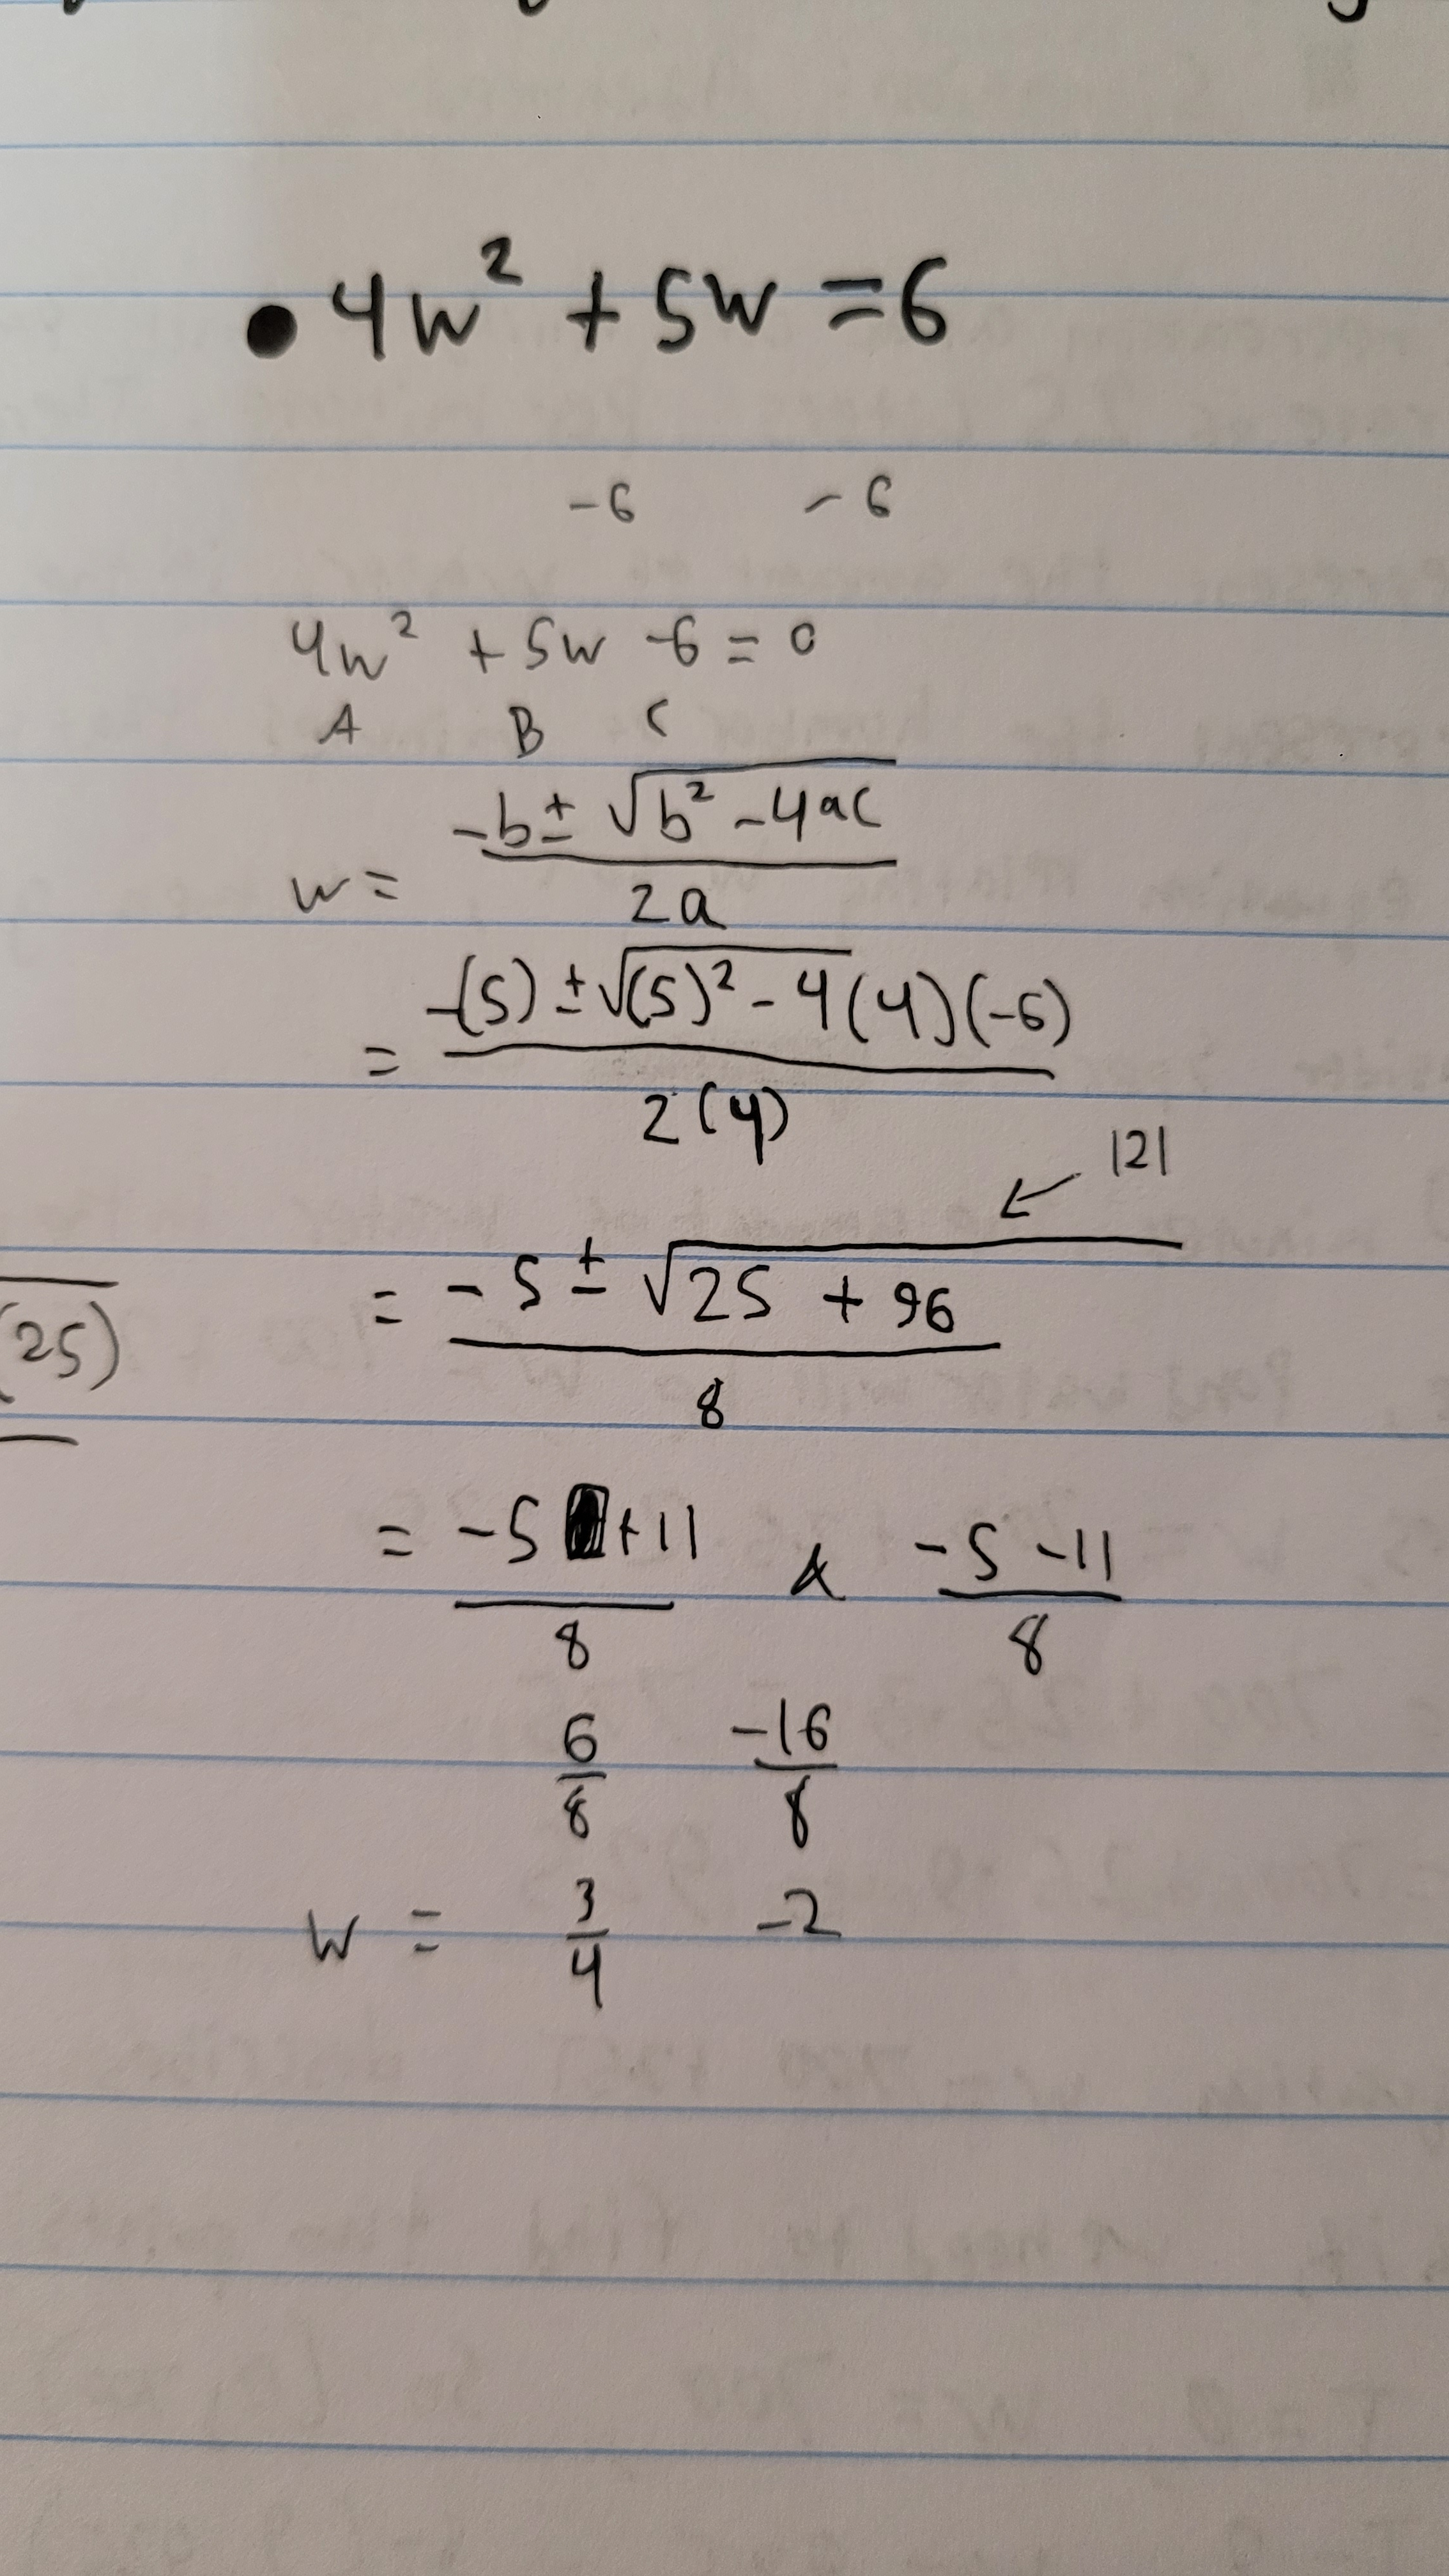 • 4w² + 5w = 6
-6 -6
4w² + 5w -6 = 0
A B C
w = (-b ± √(b² - 4ac)) / 2a
= (-(5) ± √((5)² - 4(4)(-6))) / 2(4)
121
= (-5 ± √(25 + 96)) / 8
(25)
= (-5 +11) / 8 & (-5 -11) / 8
6/8 -16/8
w = 3/4 -2